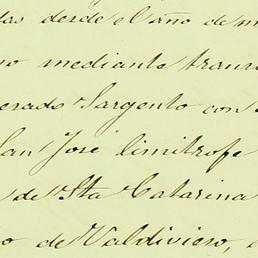 das desde el año de m
no mediante trans
erado Sargento con
San José limitrofe
de Sta Catarina
o de Valdivieso,